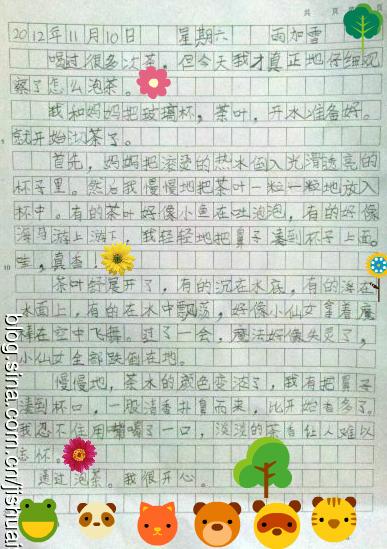 共 页 第 页
2012年11月10日 星期六 雨加雪
喝过很多次茶,但今天我才真正地仔细观
察了怎么泡茶。
我和妈妈把玻璃杯,茶叶,开水准备好。
就开始泡茶了。
首先,妈妈把滚烫的热水倒入光滑透亮的
杯子里。然后我慢慢地把茶叶一粒一粒地放入
杯中。有的茶叶好像小鱼在吐泡泡,有的好像
海马游上游下,我轻轻地把鼻子凑到杯子上面。
哇,真香!
茶叶舒展开了,有的沉在水底,有的浮在
水面上,有的在水中飘荡,好像小仙女拿着魔
棒在空中飞舞。过了一会,魔法好像失灵了,
小仙女全部跌倒在地。
慢慢地,茶水的颜色变浓了,我有把鼻子
凑到杯口,一股清香扑鼻而来,比开始香多了。
我忍不住用嘴喝了一口,淡淡的茶香让人难以
忘怀。
通过泡茶。我很开心。
blog.sina.com.cn/jishuai